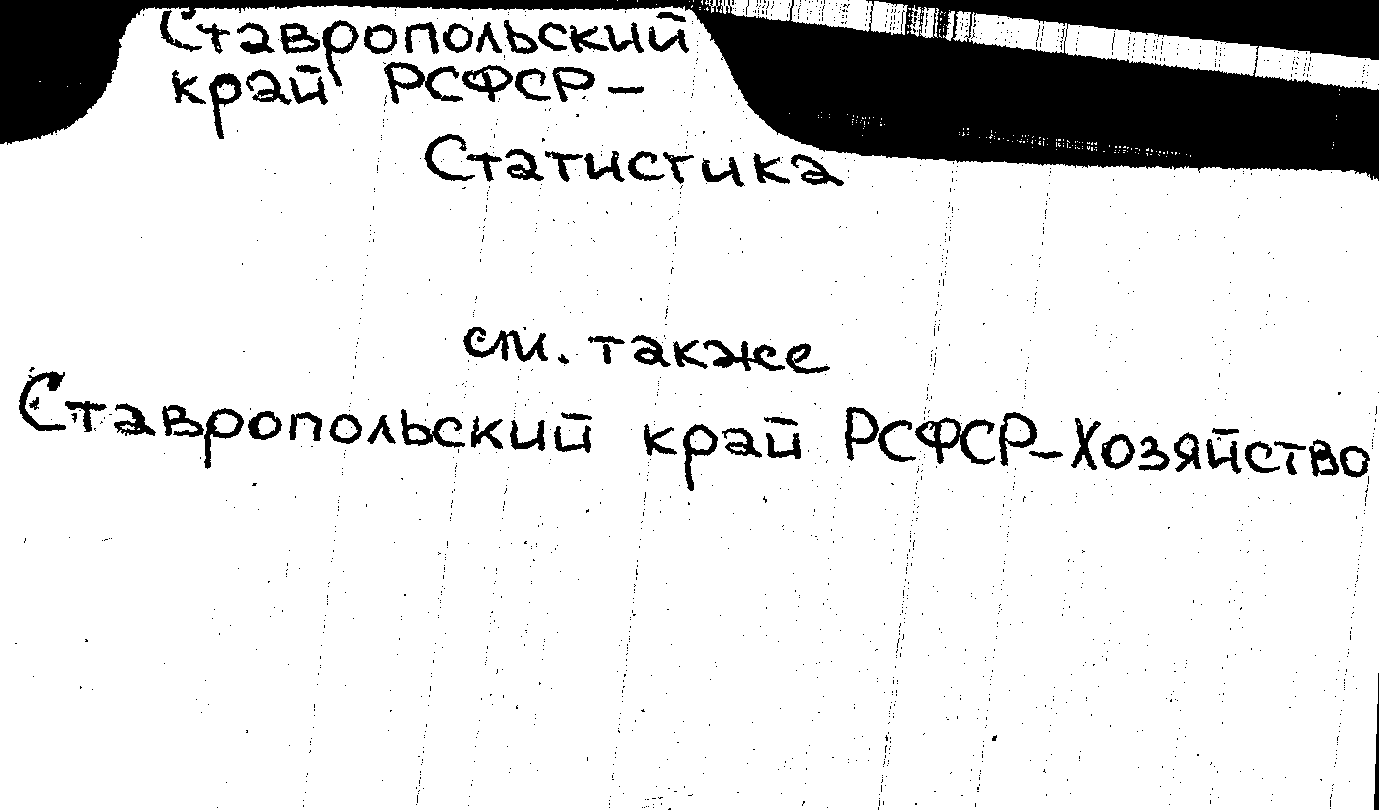 Ставропольский
край РСФСР –
Статистика
см. также
Ставропольский край РСФСР – Хозяйство